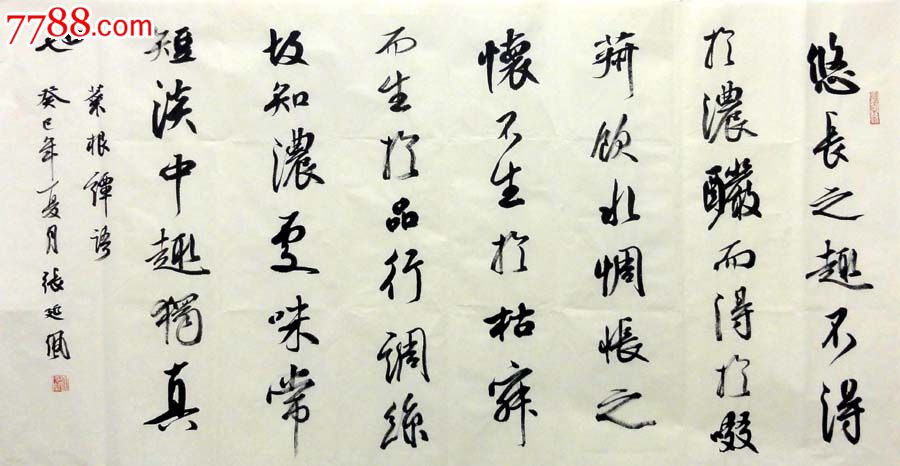 7788.com
悠長之趣不得
於濃釅而得於啜
菽飲水惆悵之
懷不生於枯寂
而生於品行調絲
故知濃處味常
短淡中趣獨真
也
菜根譚語
癸巳年夏月張延佩